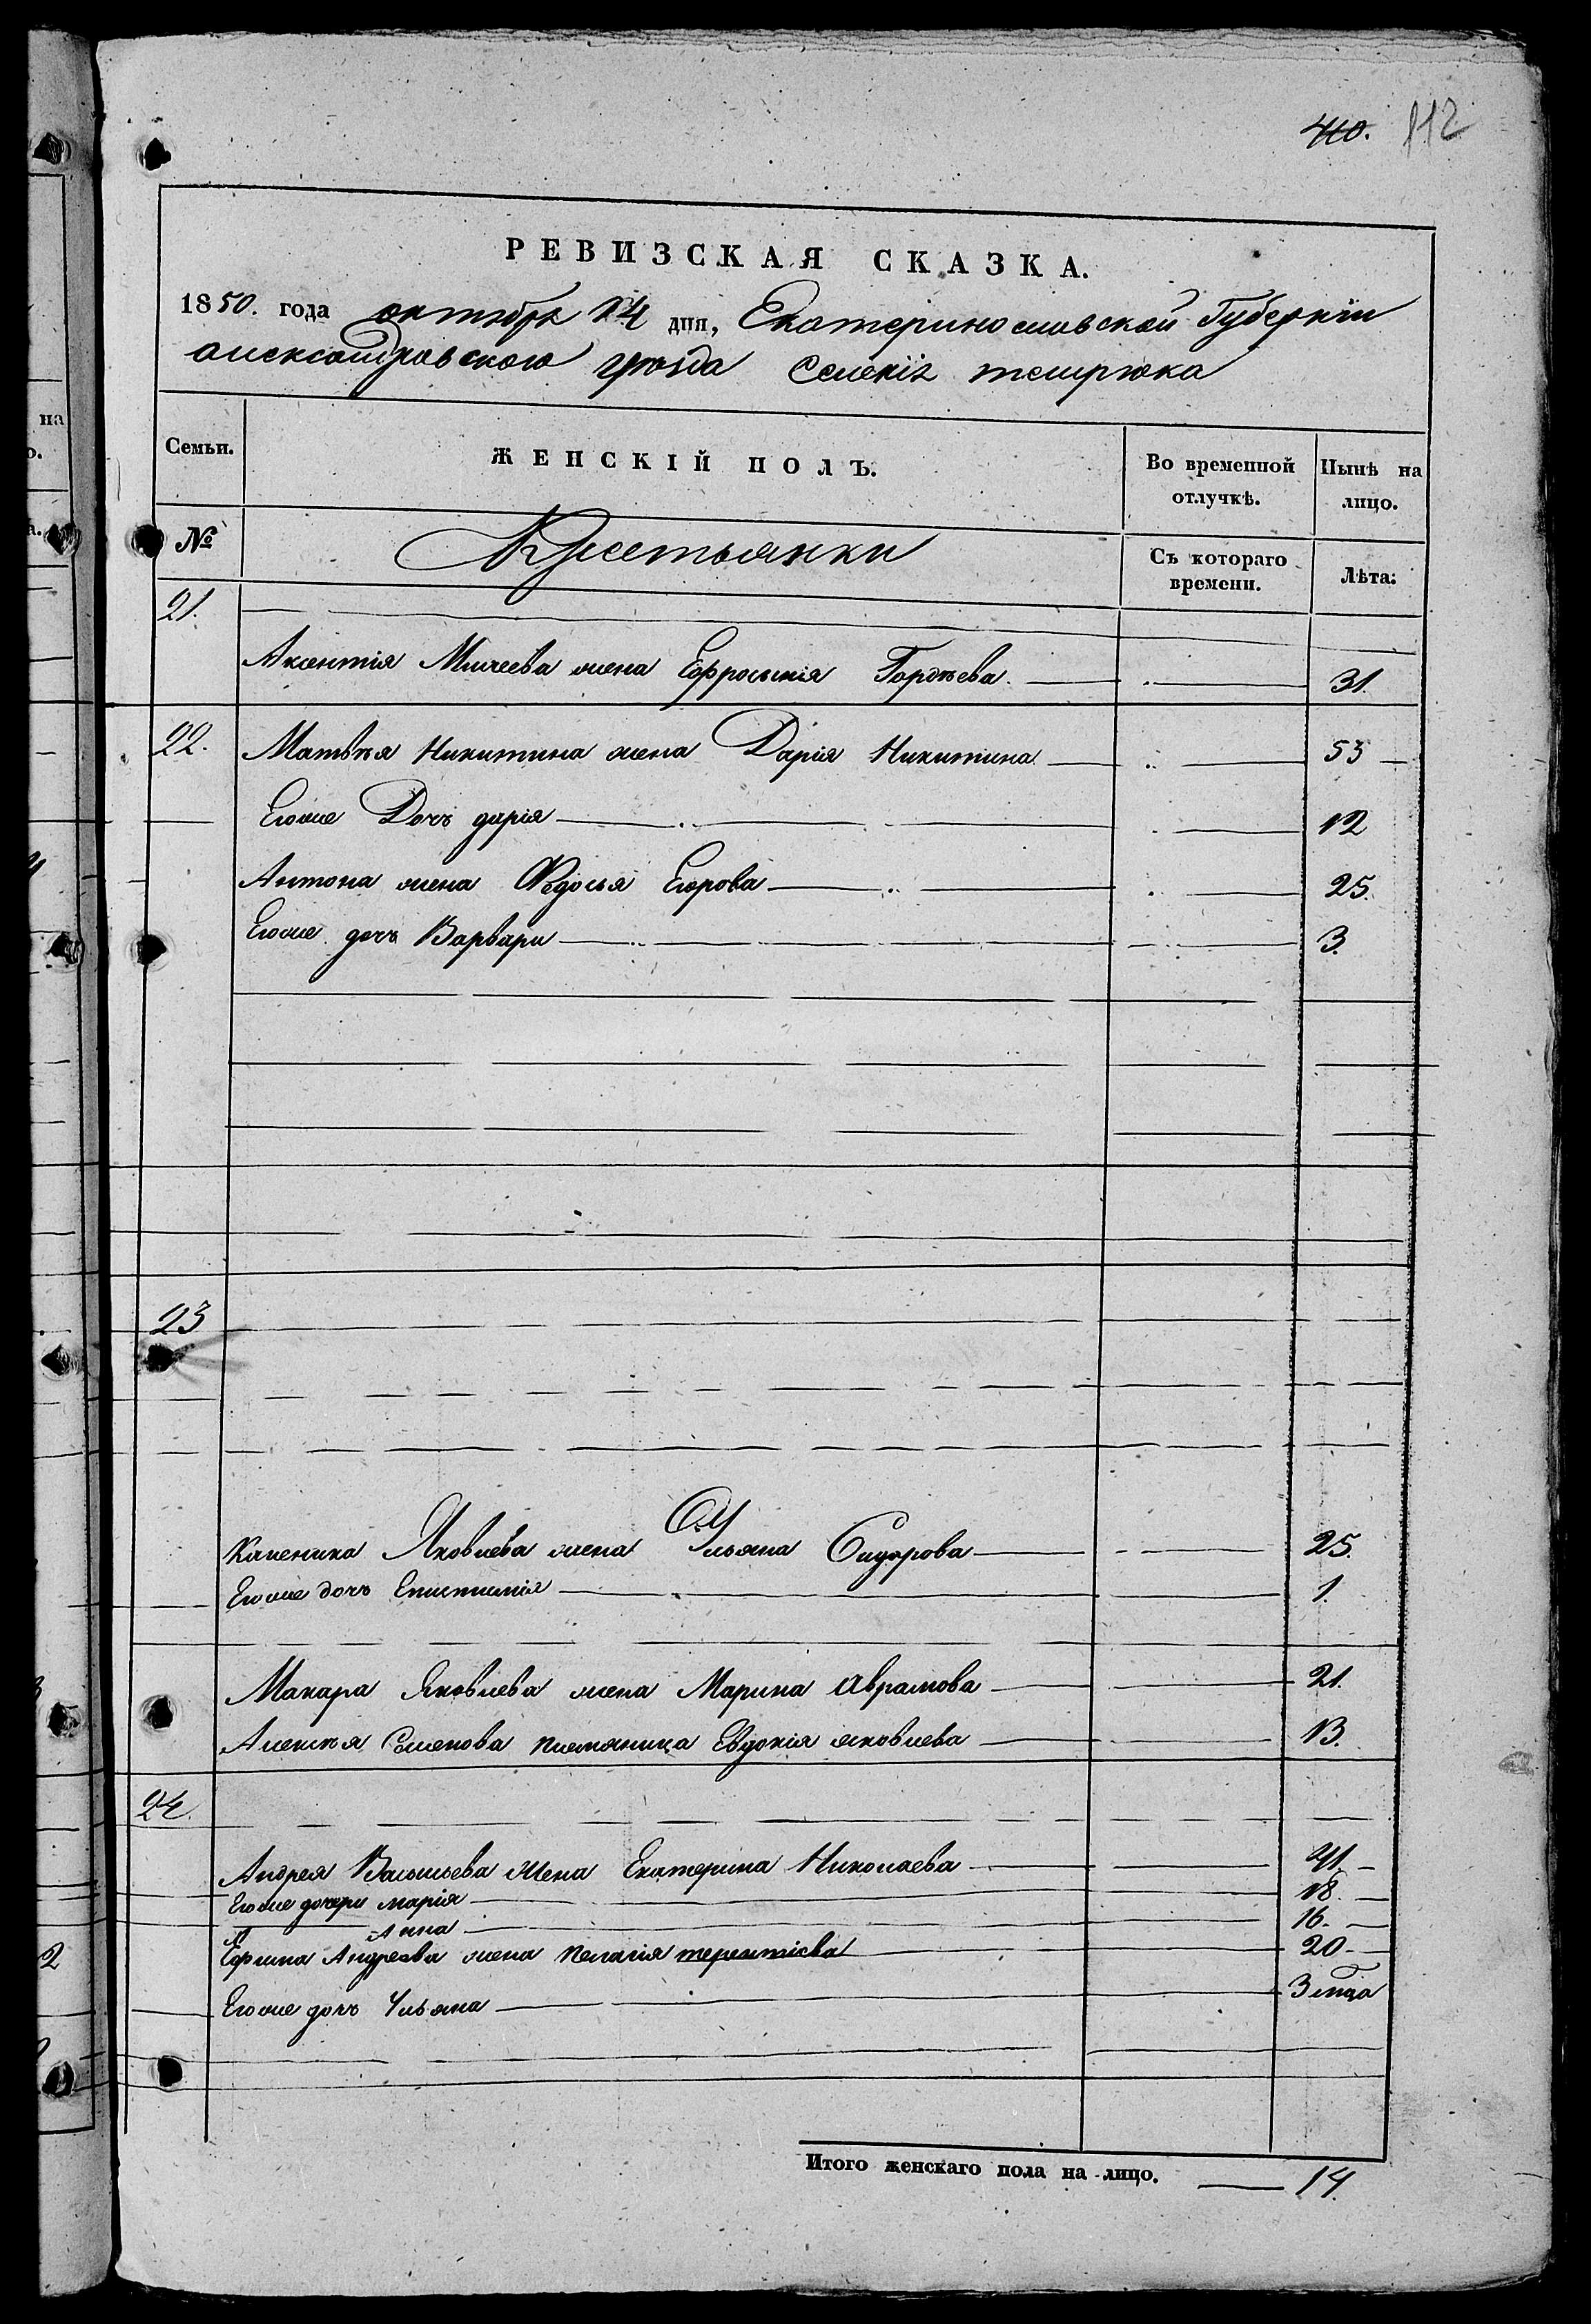 410. 112
РЕВИЗСКАЯ СКАЗКА.
1850. года октября 14 дня, Екатеринославской Губернiи
александровского уѣзда Селенiя темрюка
Семьи. ЖЕНСКIЙ ПОЛЪ. Во временной отлучкѣ. Нынѣ на лицо.
№ Крестьянки Съ котораго времени. Лѣта:
21.
Аксентiя Михеева жена Ефросинiя Гордѣева. 31.
22. Матвѣя Никитина жена Дарiя Никитина 53
Егоже Дочь дарiя 12
Антона жена Федосья Егорова 25.
Егоже дочь Варвара 3.
23
Калиника Яковлева жена Ульяна Сидорова 25.
Егоже дочь Епистимiя 1.
Макара Яковлева жена Марина аврамова 21.
Алексѣя Семенова племяница Евдокiя яковлева 13.
24.
Андрея Васильева жена Екатерина Николаева 41.
Егоже дочери марiя 18.
Анна 16.
Ефима Андреева жена пелагiя терентiева 20.
Егоже дочь Ульяна 3 мца
Итого женскаго пола на-лицо. 14.